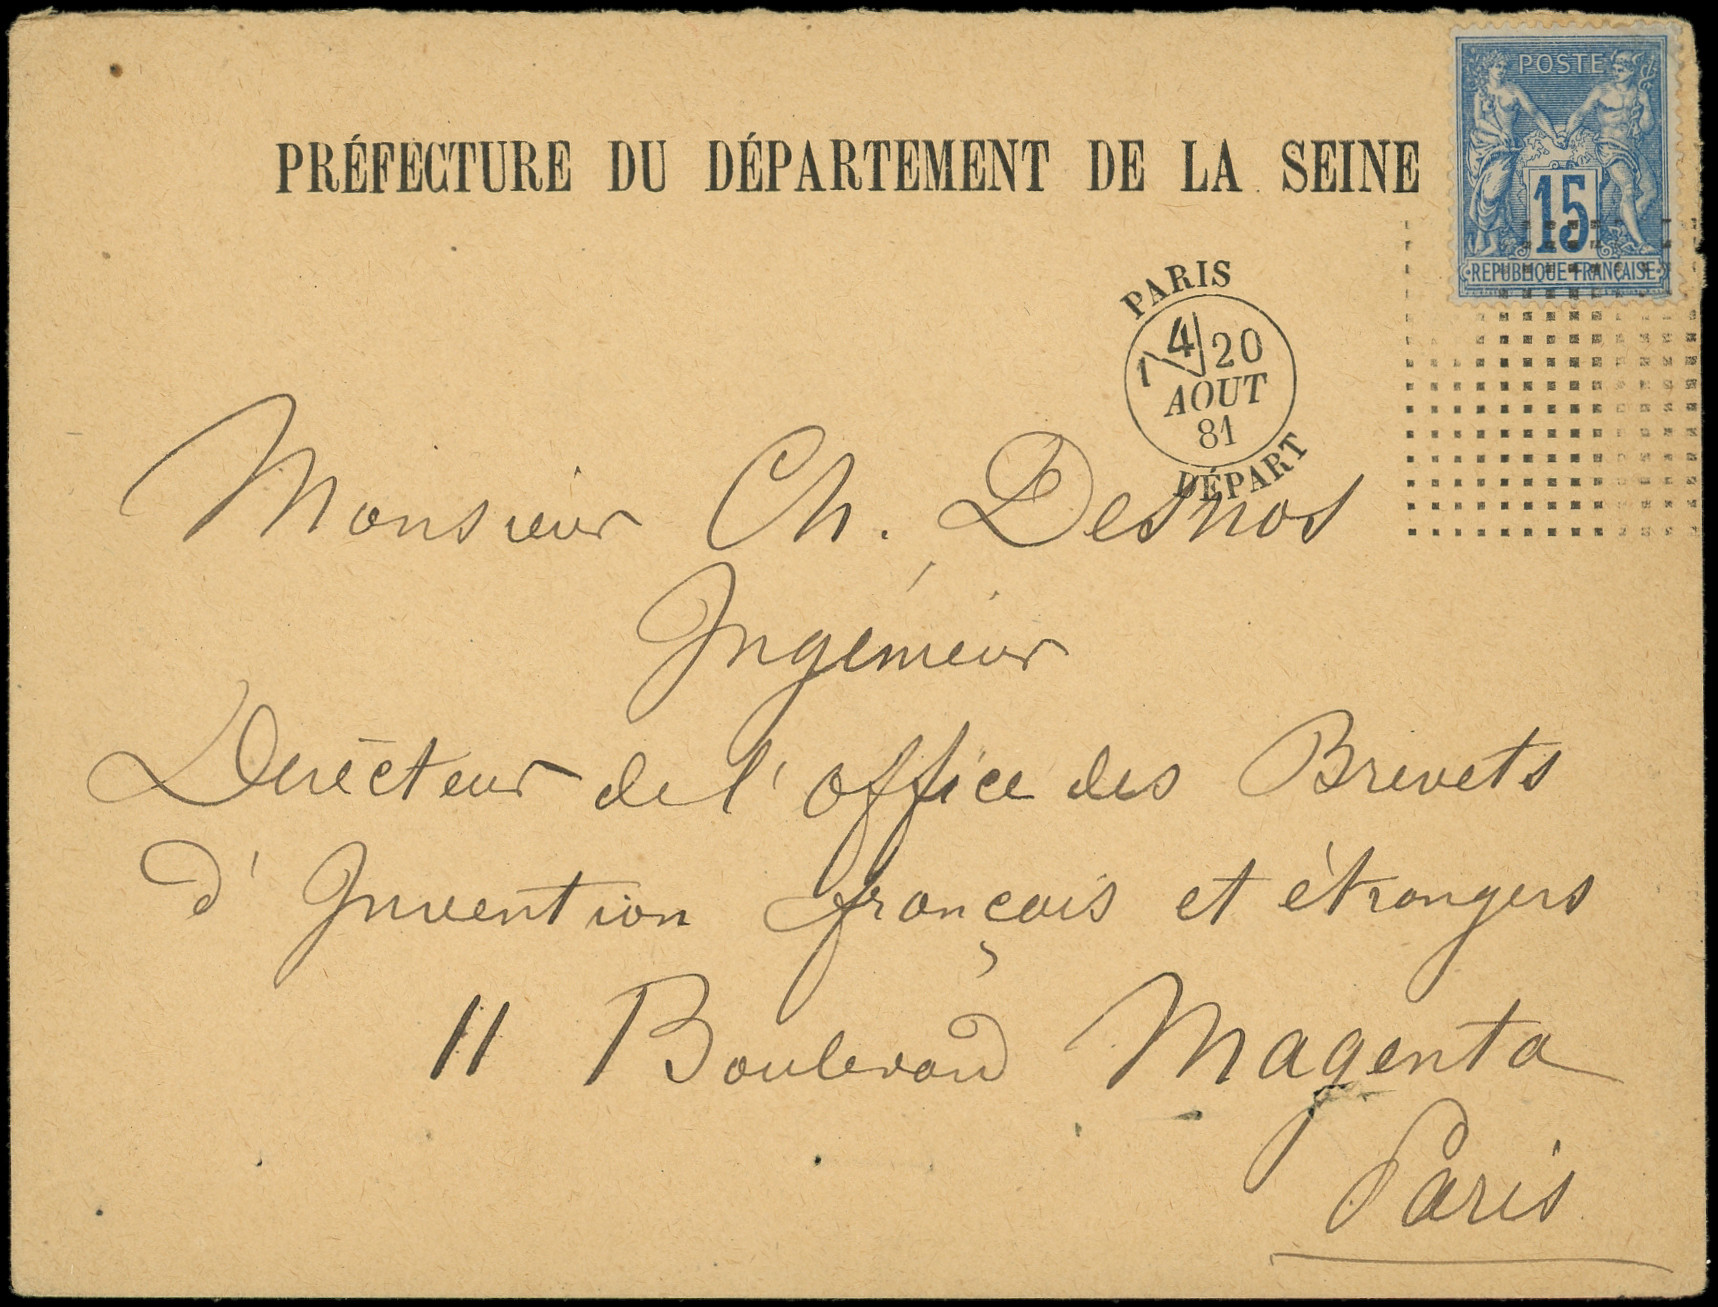 POSTE
15
REPUBLIQUE FRANÇAISE
PRÉFECTURE DU DÉPARTEMENT DE LA SEINE
PARIS
1 4 20
AOUT
81
DÉPART
Monsieur Ch. Desnos
Ingénieur
Directeur de l'office des Brevets
d'Invention français et étrangers
11 Boulevard Magenta
Paris